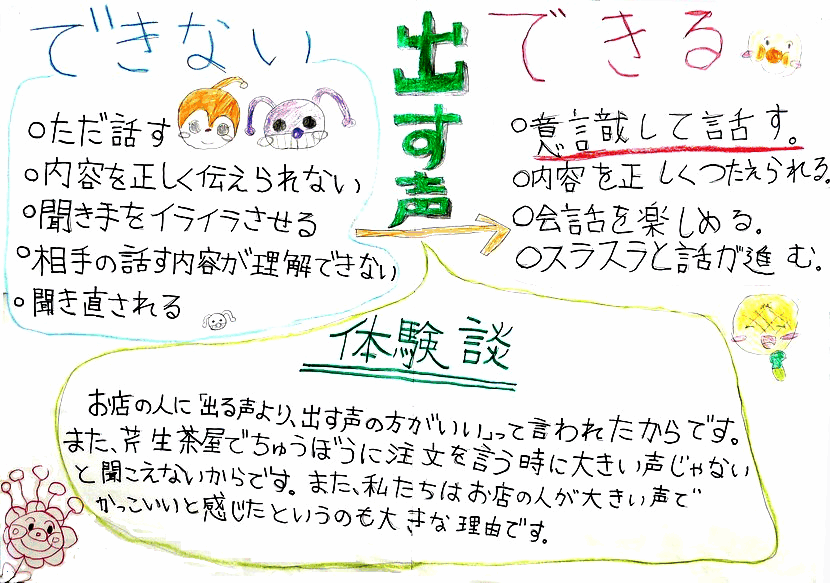 できない
○ただ話す
○内容を正しく伝えられない
○聞き手をイライラさせる
○相手の話す内容が理解できない
○聞き直される
出す声
できる
○意識して話す。
○内容を正しくつたえられる。
○会話を楽しめる。
○スラスラと話が進む。
体験談
お店の人に「出る声より、出す声の方がいい」って言われたからです。
また、芹生茶屋でちゅうぼうに注文を言う時に大きい声じゃない
と聞こえないからです。また、私たちはお店の人が大きい声で
かっこいいと感じたというのも大きな理由です。